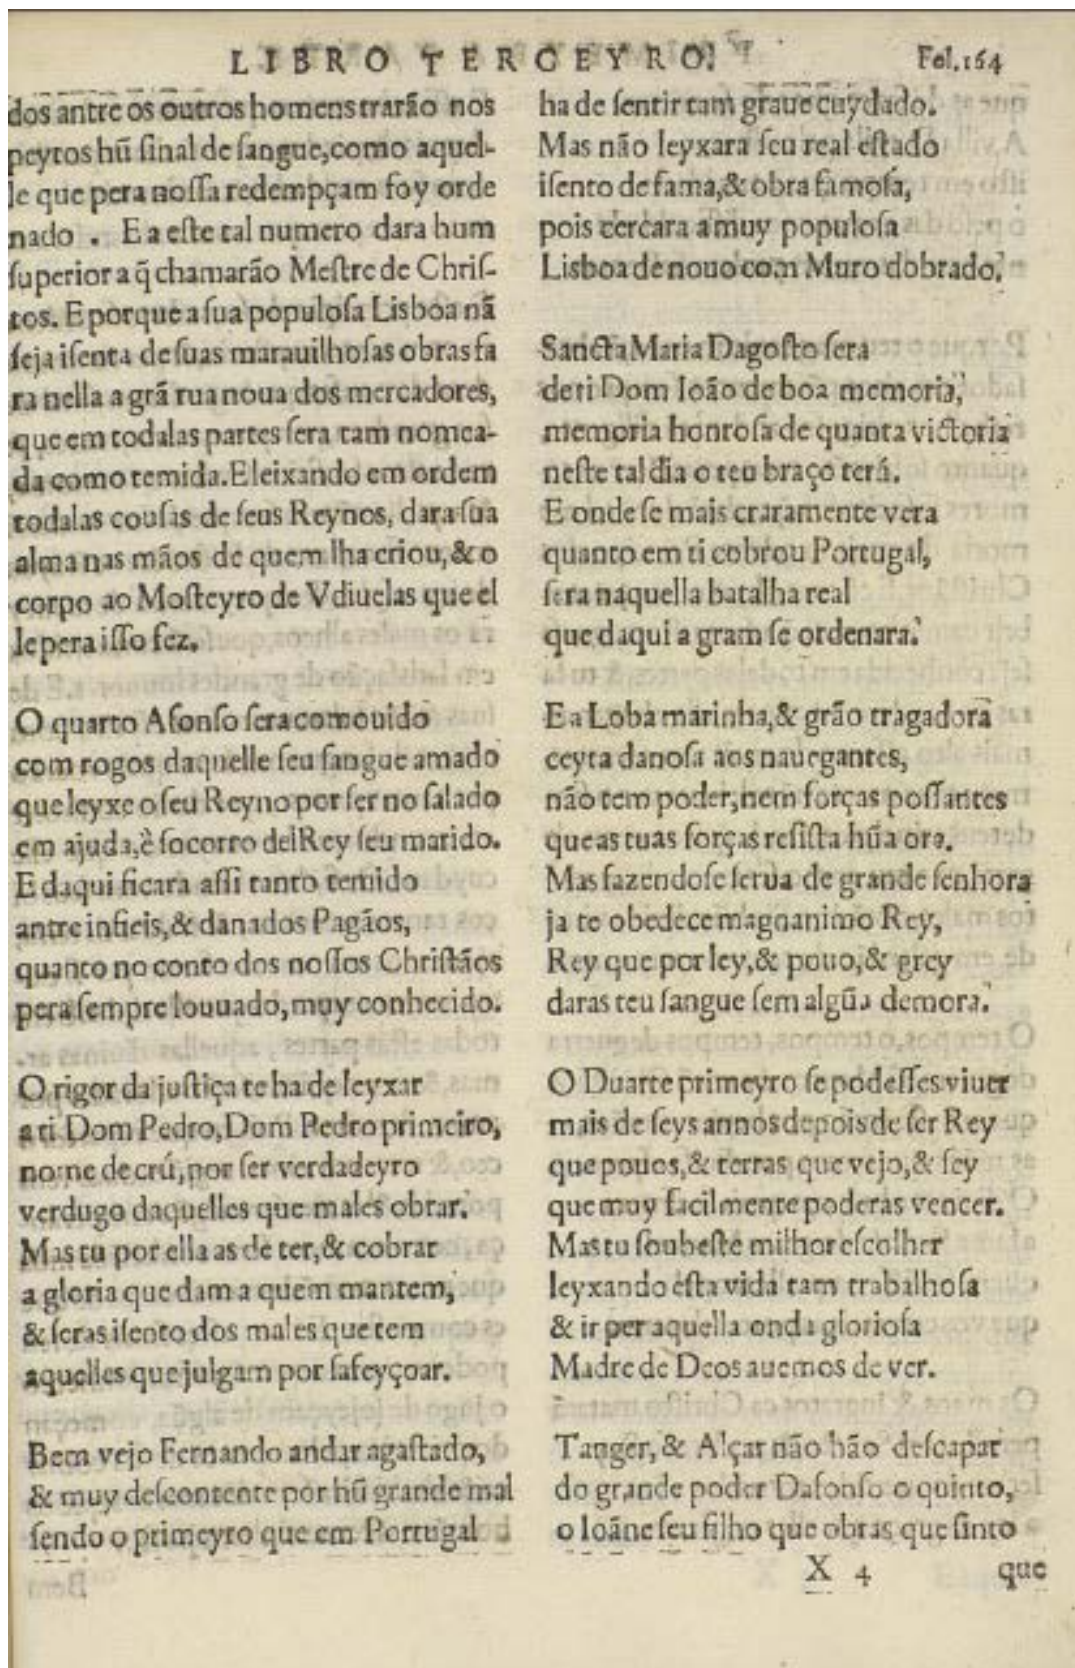 LIBRO TERCEYRO.
Fol.164
dos antre os outros homens trarão nos
peytos hũ ſinal de ſangue,como aquel-
le que pera noſſa redempçam foy orde
nado . E a eſte tal numero dara hum
ſuperior a q̃ chamarão Meſtre de Chriſ-
tos. E porque a ſua populoſa Lisboa nã
ſeja iſenta de ſuas marauilhoſas obras fa
ra nella a grã rua noua dos mercadores,
que em todalas partes ſera tam nomea-
da como temida. E leixando em ordem
todalas couſas de ſeus Reynos, dara ſua
alma nas mãos de quem lha criou,& o
corpo ao Moſteyro de Vdiuelas que el
le pera iſſo fez.
O quarto Afonſo ſera comouido
com rogos daquelle ſeu ſangue amado
que leyxe o ſeu Reyno por ſer no ſalado
em ajuda,è ſocorro delRey ſeu marido.
E daqui ficara aſſi tanto temido
antre infieis,& danados Pagãos,
quanto no conto dos noſſos Chriſtãos
pera ſempre louuado,muy conhecido.
O rigor da juſtiça te ha de leyxar
a ti Dom Pedro,Dom Pedro primeiro,
nome de crú,por ſer verdadeyro
verdugo daquelles que males obrar.
Mas tu por ella as de ter,& cobrar
a gloria que dam a quem mantem,
& ſeras iſento dos males que tem
aquelles que julgam por ſafeyçoar.
Bem vejo Fernando andar agaſtado,
& muy deſcontente por hũ grande mal
ſendo o primeyro que em Portugal
ha de ſentir tam graue cuydado.
Mas não leyxara ſeu real eſtado
iſento de fama,& obra famoſa,
pois cercara a muy populoſa
Lisboa de nouo com Muro dobrado.
Sancta Maria Dagoſto ſera
de ti Dom Ioão de boa memoria,
memoria honroſa de quanta victoria
neſte tal dia o teu braço terá.
E onde ſe mais craramente vera
quanto em ti cobrou Portugal,
ſera naquella batalha real
que daqui a gram ſe ordenara.
E a Loba marinha,& grão tragadora
ceyta danoſa aos nauegantes,
não tem poder,nem forças poſſantes
que as tuas forças reſiſta hũa ora.
Mas fazendoſe ſerua de grande ſenhora
ja te obedece magnanimo Rey,
Rey que por ley,& pouo,& grey
daras teu ſangue ſem algũa demora.
O Duarte primeyro ſe podeſſes viuer
mais de ſeys annos depois de ſer Rey
que pouos,& terras que vejo,& ſey
que muy facilmente poderas vencer.
Mas tu ſoubeſte milhor eſcolher
leyxando eſta vida tam trabalhoſa
& ir per aquella onda glorioſa
Madre de Deos auemos de ver.
Tanger, & Alçar não hão deſcapar
do grande poder Dafonſo o quinto,
o Ioãne ſeu filho que obras que ſinto
X 4
que